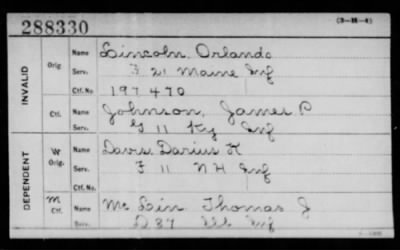 288330 (3-M-4)
INVALID Orig. Name Lincoln, Orlando
Serv. F 21 Maine Inf
Ctf. No 197470
Ctf. Name Johnson, James P
Serv. G 11 Ky Inf
DEPENDENT W Orig. Name Davis, Darius K
Serv. F 11 N H Inf
Ctf. No.
M Ctf. Name Mc Lin Thomas J
Serv. D 37 Ill Inf